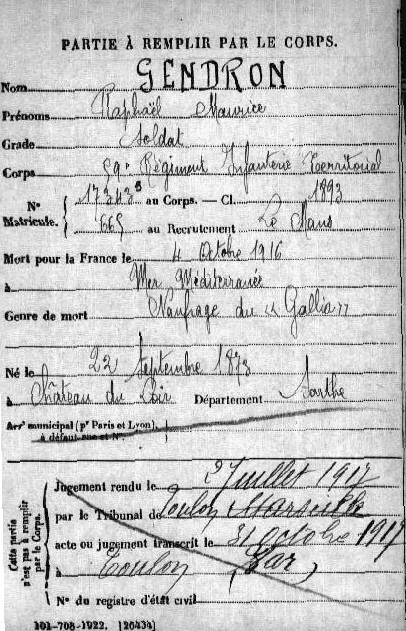 PARTIE À REMPLIR PAR LE CORPS.
GENDRON
Nom
Prénoms Raphaël Maurice
Grade Soldat
Corps 59e Régiment Infanterie Territorial
N° Matricule. 17343 au Corps. — Cl. 1893
665 au Recrutement Le Mans
Mort pour la France le 4 Octobre 1916
à Mer Méditerranée
Genre de mort Naufrage du « Gallia »
Né le 22 Septembre 1873
à Château du Loir Département Sarthe
Arrt municipal (pr Paris et Lyon),
à défaut rue et N°.
Cette partie n'est pas à remplir par le Corps.
Jugement rendu le 2 Juillet 1917
par le Tribunal de Toulon Marseille
acte ou jugement transcrit le 31 octobre 1917
à Toulon (Var)
N° du registre d'état civil
101-708-1922. [26434]